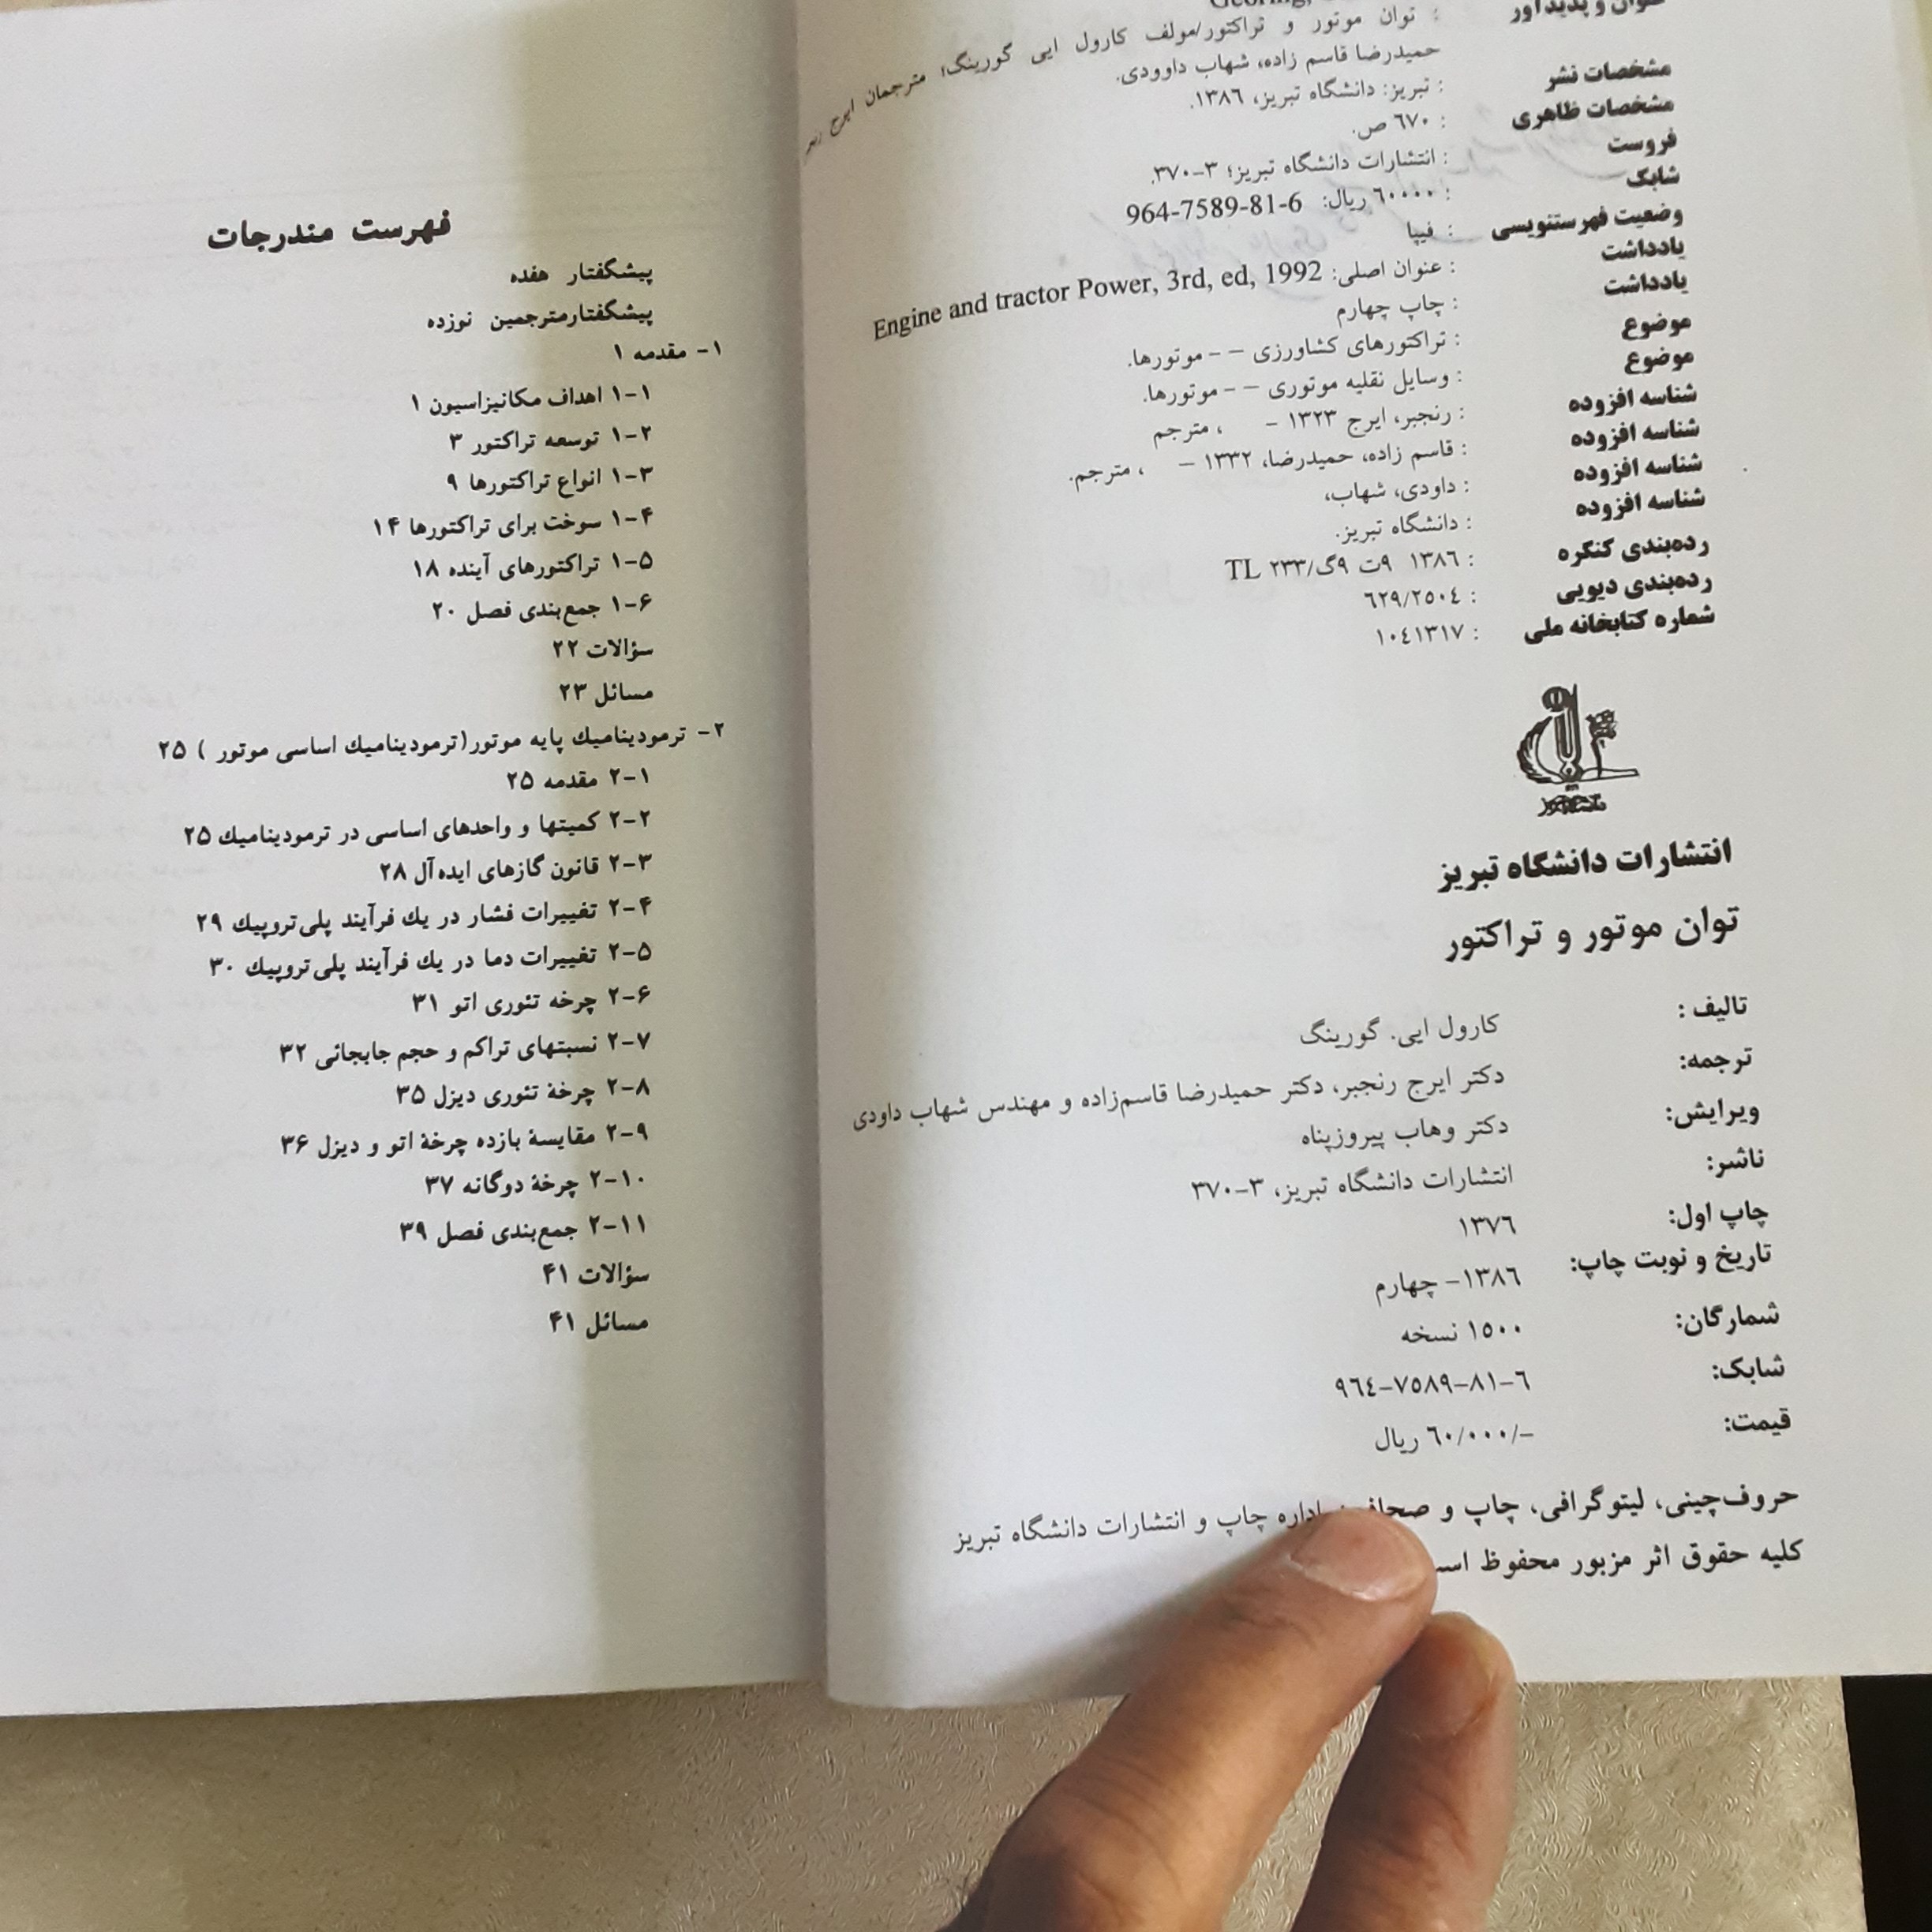 عنوان و پدیدآور : توان موتور و تراکتور/مولف کارول ایی گورینگ؛ مترجمان ایرج
حمیدرضا قاسم زاده، شهاب داوودی.
مشخصات نشر : تبریز: دانشگاه تبریز، ١٣٨٦.
مشخصات ظاهری : ٦٧٠ ص.
فروست : انتشارات دانشگاه تبریز؛ ٣-٣٧٠.
شابک : ٦٠٠٠٠ ریال: 964-7589-81-6
وضعیت فهرستنویسی : فیپا
یادداشت : عنوان اصلی: Engine and tractor Power, 3rd, ed, 1992
یادداشت : چاپ چهارم
موضوع : تراکتورهای کشاورزی -- موتورها.
موضوع : وسایل نقلیه موتوری -- موتورها.
شناسه افزوده : رنجبر، ایرج ١٣٢٣ - ، مترجم
شناسه افزوده : قاسم زاده، حمیدرضا، ١٣٣٢ - ، مترجم.
شناسه افزوده : داودی، شهاب،
شناسه افزوده : دانشگاه تبریز.
رده‌بندی کنگره : ١٣٨٦ ٩ت ٩گ/٢٣٣ TL
رده‌بندی دیویی : ٦٢٩/٢٥٠٤
شماره کتابخانه ملی : ١٠٤١٣١٧
انتشارات دانشگاه تبریز
توان موتور و تراکتور
تالیف: کارول ایی. گورینگ
ترجمه: دکتر ایرج رنجبر، دکتر حمیدرضا قاسم‌زاده و مهندس شهاب داودی
ویرایش: دکتر وهاب پیروزپناه
ناشر: انتشارات دانشگاه تبریز، ٣-٣٧٠
چاپ اول: ١٣٧٦
تاریخ و نوبت چاپ: ١٣٨٦- چهارم
شمارگان: ١٥٠٠ نسخه
شابک: ٩٦٤-٧٥٨٩-٨١-٦
قیمت: ٦٠/٠٠٠/- ریال
حروف‌چینی، لیتوگرافی، چاپ و اداره چاپ و انتشارات دانشگاه تبریز
کلیه حقوق اثر مزبور محفوظ
فهرست مندرجات
پیشگفتار هفده
پیشگفتارمترجمین نوزده
۱- مقدمه ۱
۱-۱ اهداف مکانیزاسیون ۱
۱-۲ توسعه تراکتور ۳
۱-۳ انواع تراکتورها ۹
۱-۴ سوخت برای تراکتورها ۱۴
۱-۵ تراکتورهای آینده ۱۸
۱-۶ جمع‌بندی فصل ۲۰
سؤالات ۲۲
مسائل ۲۳
۲- ترمودینامیك پایه موتور(ترمودینامیك اساسی موتور ) ۲۵
۲-۱ مقدمه ۲۵
۲-۲ کمیتها و واحدهای اساسی در ترمودینامیك ۲۵
۲-۳ قانون گازهای ایده‌آل ۲۸
۲-۴ تغییرات فشار در یك فرآیند پلی‌تروپیك ۲۹
۲-۵ تغییرات دما در یك فرآیند پلی‌تروپیك ۳۰
۲-۶ چرخه تئوری اتو ۳۱
۲-۷ نسبتهای تراکم و حجم جابجائی ۳۲
۲-۸ چرخۀ تئوری دیزل ۳۵
۲-۹ مقایسۀ بازده چرخۀ اتو و دیزل ۳۶
۲-۱۰ چرخۀ دوگانه ۳۷
۲-۱۱ جمع‌بندی فصل ۳۹
سؤالات ۴۱
مسائل ۴۱